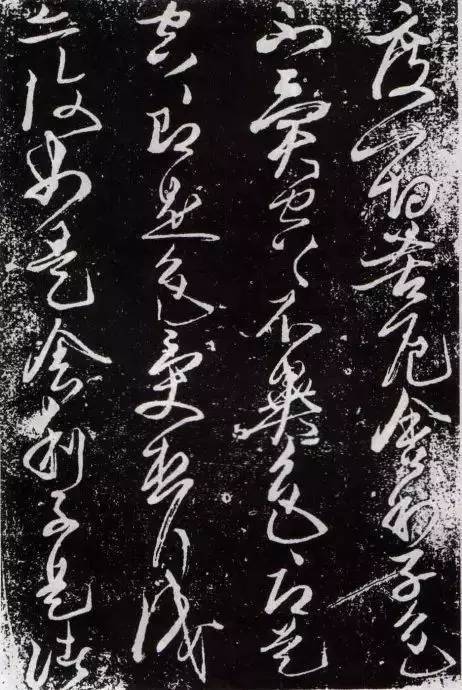 度一切苦厄舍利子色
不異空〻不異色〻即是
空〻即是色受想行識
亦復如是舍利子是諸